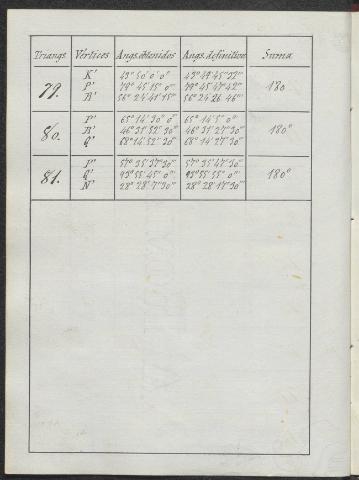 Triangs. Vértices Angs. obtenidos Angs. definitivos Suma
K' 43° 50' 0" 0'''
79. P' 79° 45' 15" 0''' 79° 45' 47" 42''' 180
R' 56° 24' 41" 15''' 56° 24' 26" 46'''
P' 65° 14' 30" 0''' 65° 14' 5" 0'''
80. R' 46° 31' 52" 30''' 46° 31' 27" 30''' 180°
Q' 68° 14' 52" 30''' 68° 14' 27" 30'''
P' 57° 35' 37" 30''' 57° 35' 47" 30'''
81. Q' 93° 55' 45" 0''' 93° 55' 55" 0''' 180°
N' 28° 28' 7" 30''' 28° 28' 17" 30'''